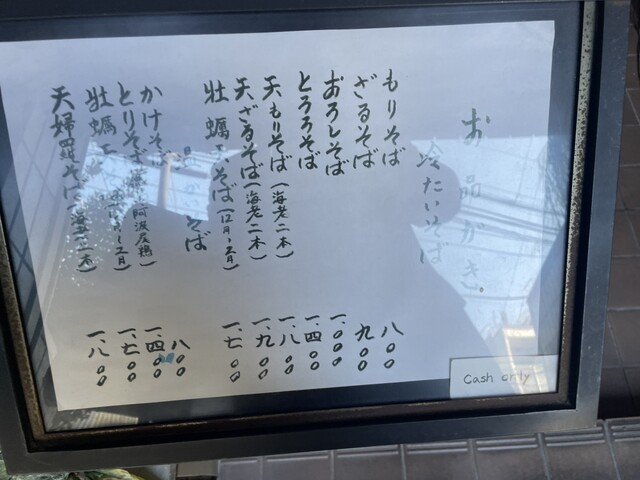 お品がき
冷たいそば
もりそば 八〇〇
ざるそば 九〇〇
おろしそば 一、〇〇〇
とろろそば 一、四〇〇
天もりそば(海老二本) 一、八〇〇
天ざるそば(海老二本) 一、九〇〇
牡蠣そば(12月〜2月) 一、七〇〇
かいそば
かけそば 八〇〇
とりそば(阿波尾鶏) 一、四〇〇
牡蠣 月) 一、七〇〇
天婦羅そば(海老二本) 一、八〇〇
Cash only